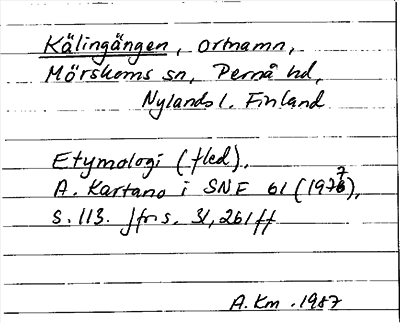 Kälingängen, ortnamn,
Mörskoms sn, Pernå hd,
Nylands l. Finland
Etymologi (fled).
A. Kartano i SNF 61 (1977),
s. 113. Jfr s. 31, 261 ff
A.Km. 1987